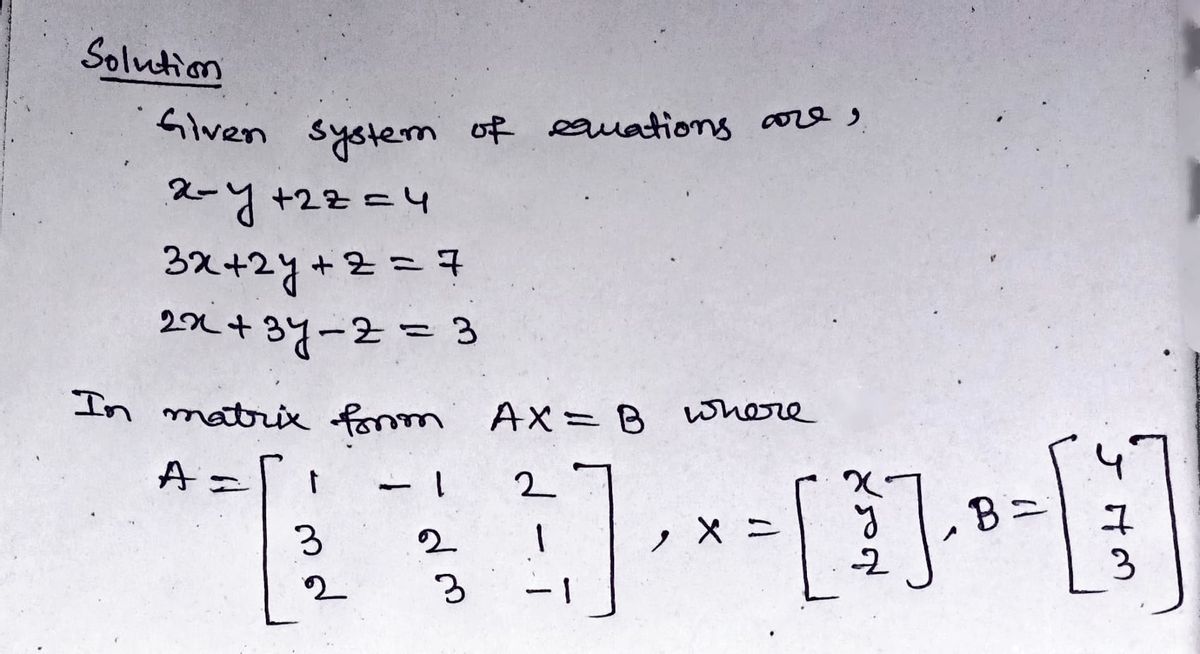 Solution
Given system of equations are,
x-y+2z=4
3x+2y+z=7
2x+3y-z=3
In matrix form AX=B where
A=[1 -1 2
3 2 1
2 3 -1], X=[x
y
z], B=[4
7
3]